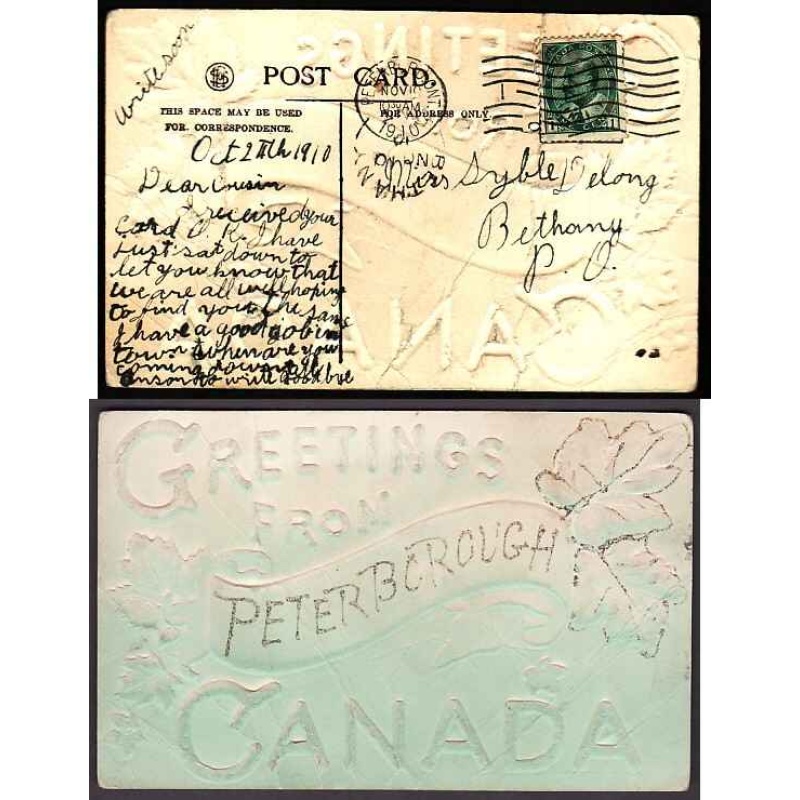 Write soon
POST CARD
THIS SPACE MAY BE USED
FOR CORRESPONDENCE.
FOR ADDRESS ONLY.
NOV 10
1910
Oct 2 1910
Dear Cousin
I received your
Card O. K. I have
just sat down to
let you know that
we are all well hoping
to find you the same
I have a good job in
town when are you
coming down
to write Good bye
Miss Syble Delong
Bethany
P. O.
GREETINGS
FROM
PETERBOROUGH
CANADA